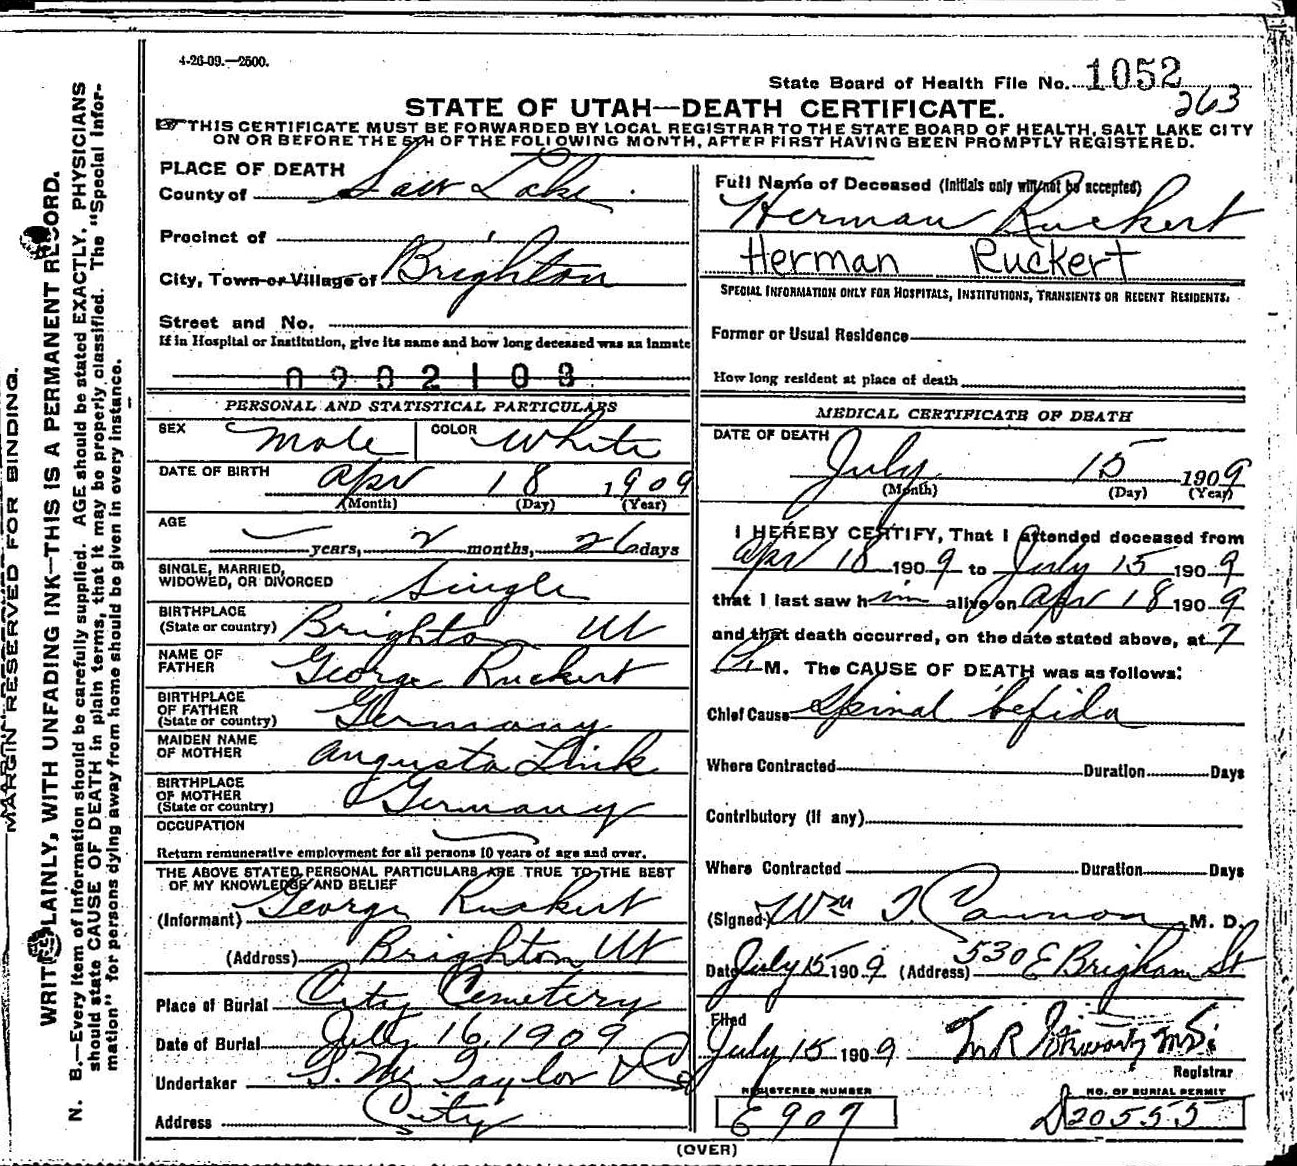 4-26-09.—2500.
State Board of Health File No. 1052
263
STATE OF UTAH—DEATH CERTIFICATE.
THIS CERTIFICATE MUST BE FORWARDED BY LOCAL REGISTRAR TO THE STATE BOARD OF HEALTH, SALT LAKE CITY
ON OR BEFORE THE 5TH OF THE FOLLOWING MONTH, AFTER FIRST HAVING BEEN PROMPTLY REGISTERED.
PLACE OF DEATH
County of Salt Lake
Precinct of
City, Town or Village of Brighton
Street and No.
If in Hospital or Institution, give its name and how long deceased was an inmate
0902108
PERSONAL AND STATISTICAL PARTICULARS
SEX Male COLOR White
DATE OF BIRTH Apr 18 1909
(Month) (Day) (Year)
AGE
— years, 2 months, 26 days
SINGLE, MARRIED,
WIDOWED, OR DIVORCED Single
BIRTHPLACE
(State or country) Brighton Ut
NAME OF
FATHER George Ruckert
BIRTHPLACE
OF FATHER
(State or country) Germany
MAIDEN NAME
OF MOTHER Augusta Link
BIRTHPLACE
OF MOTHER
(State or country) Germany
OCCUPATION
Return remunerative employment for all persons 10 years of age and over.
THE ABOVE STATED PERSONAL PARTICULARS ARE TRUE TO THE BEST
OF MY KNOWLEDGE AND BELIEF
(Informant) George Ruckert
(Address) Brighton Ut
Place of Burial City Cemetery
Date of Burial July 16, 1909
Undertaker S. M. Taylor & Co
Address City
Full Name of Deceased (Initials only will not be accepted)
Herman Ruckert
Herman Ruckert
SPECIAL INFORMATION ONLY FOR HOSPITALS, INSTITUTIONS, TRANSIENTS OR RECENT RESIDENTS.
Former or Usual Residence
How long resident at place of death
MEDICAL CERTIFICATE OF DEATH
DATE OF DEATH
July 15 1909
(Month) (Day) (Year)
I HEREBY CERTIFY, That I attended deceased from
Apr 18 1909 to July 15 1909
that I last saw him alive on Apr 18 1909
and that death occurred, on the date stated above, at 7
P. M. The CAUSE OF DEATH was as follows:
Chief Cause Spinal befida
Where Contracted Duration Days
Contributory (if any)
Where Contracted Duration Days
(Signed) Wm T Cannon M. D.
Date July 15 1909 (Address) 530 E Brigham St
Filed
July 15 1909 M R Stewart M.D.
Registrar
REGISTERED NUMBER
E 907
NO. OF BURIAL PERMIT
D20555
(OVER)
MARGIN RESERVED FOR BINDING.
WRITE PLAINLY, WITH UNFADING INK—THIS IS A PERMANENT RECORD.
N. B.—Every item of information should be carefully supplied. AGE should be stated EXACTLY. PHYSICIANS
should state CAUSE OF DEATH in plain terms, that it may be properly classified. The "Special Infor-
mation" for persons dying away from home should be given in every instance.